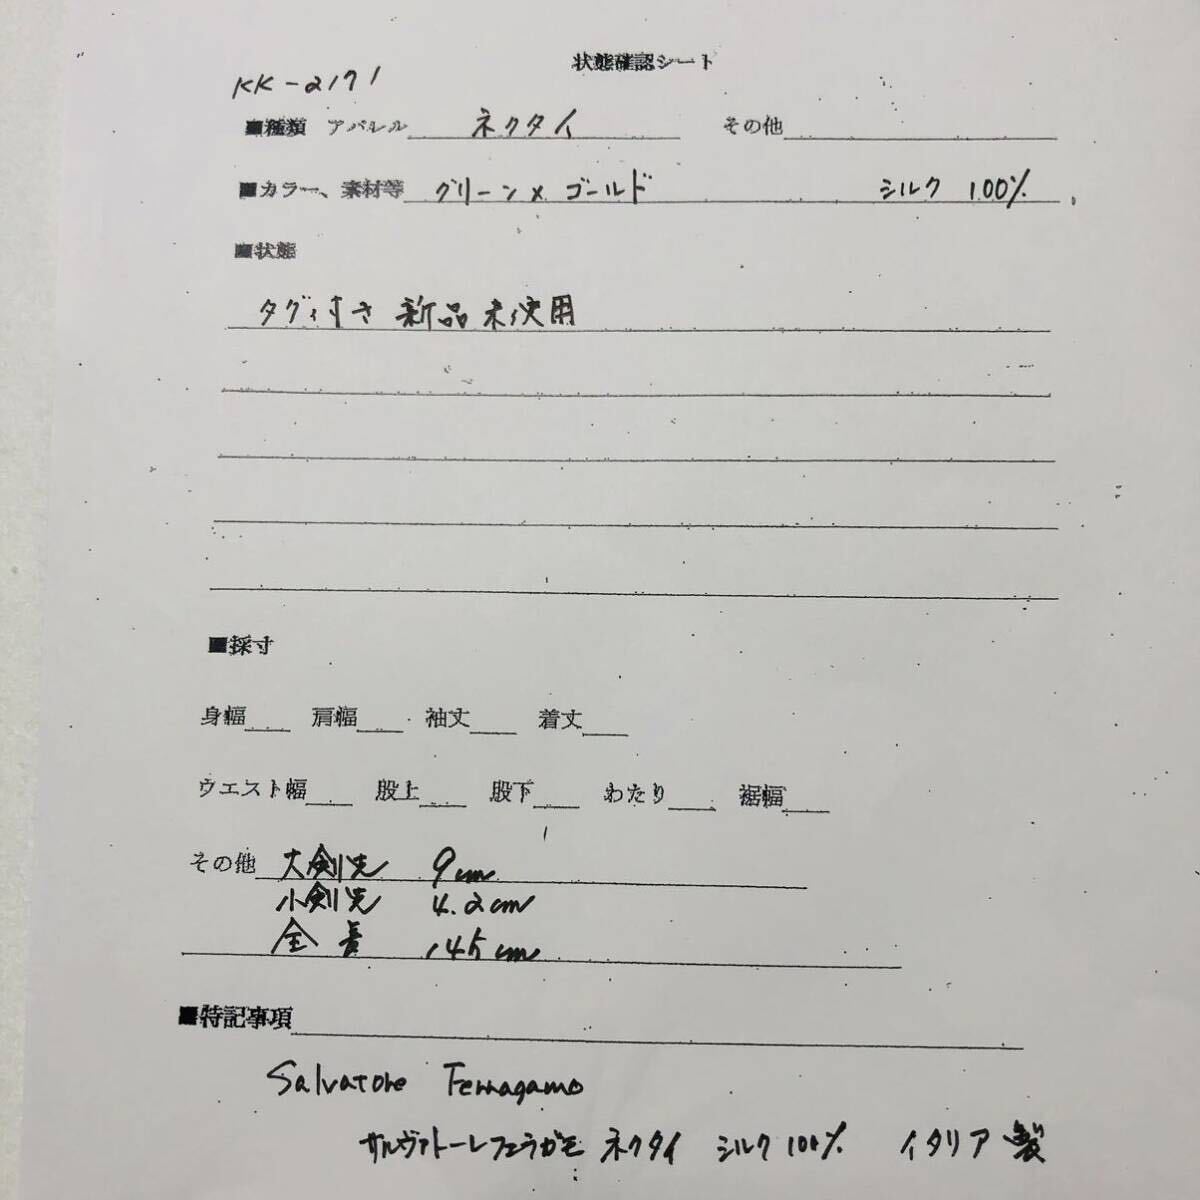 状態確認シート
KK-2171
■種類 アパレル ネクタイ その他
■カラー、素材等 グリーン×ゴールド シルク 100%
■状態
タグ付き 新品未使用
■採寸
身幅 肩幅 袖丈 着丈
ウエスト幅 股上 股下 わたり 裾幅
その他 大剣先 9cm
小剣先 4.2cm
全長 145cm
■特記事項
Salvatore Ferragamo
サルヴァトーレフェラガモ ネクタイ シルク100% イタリア製